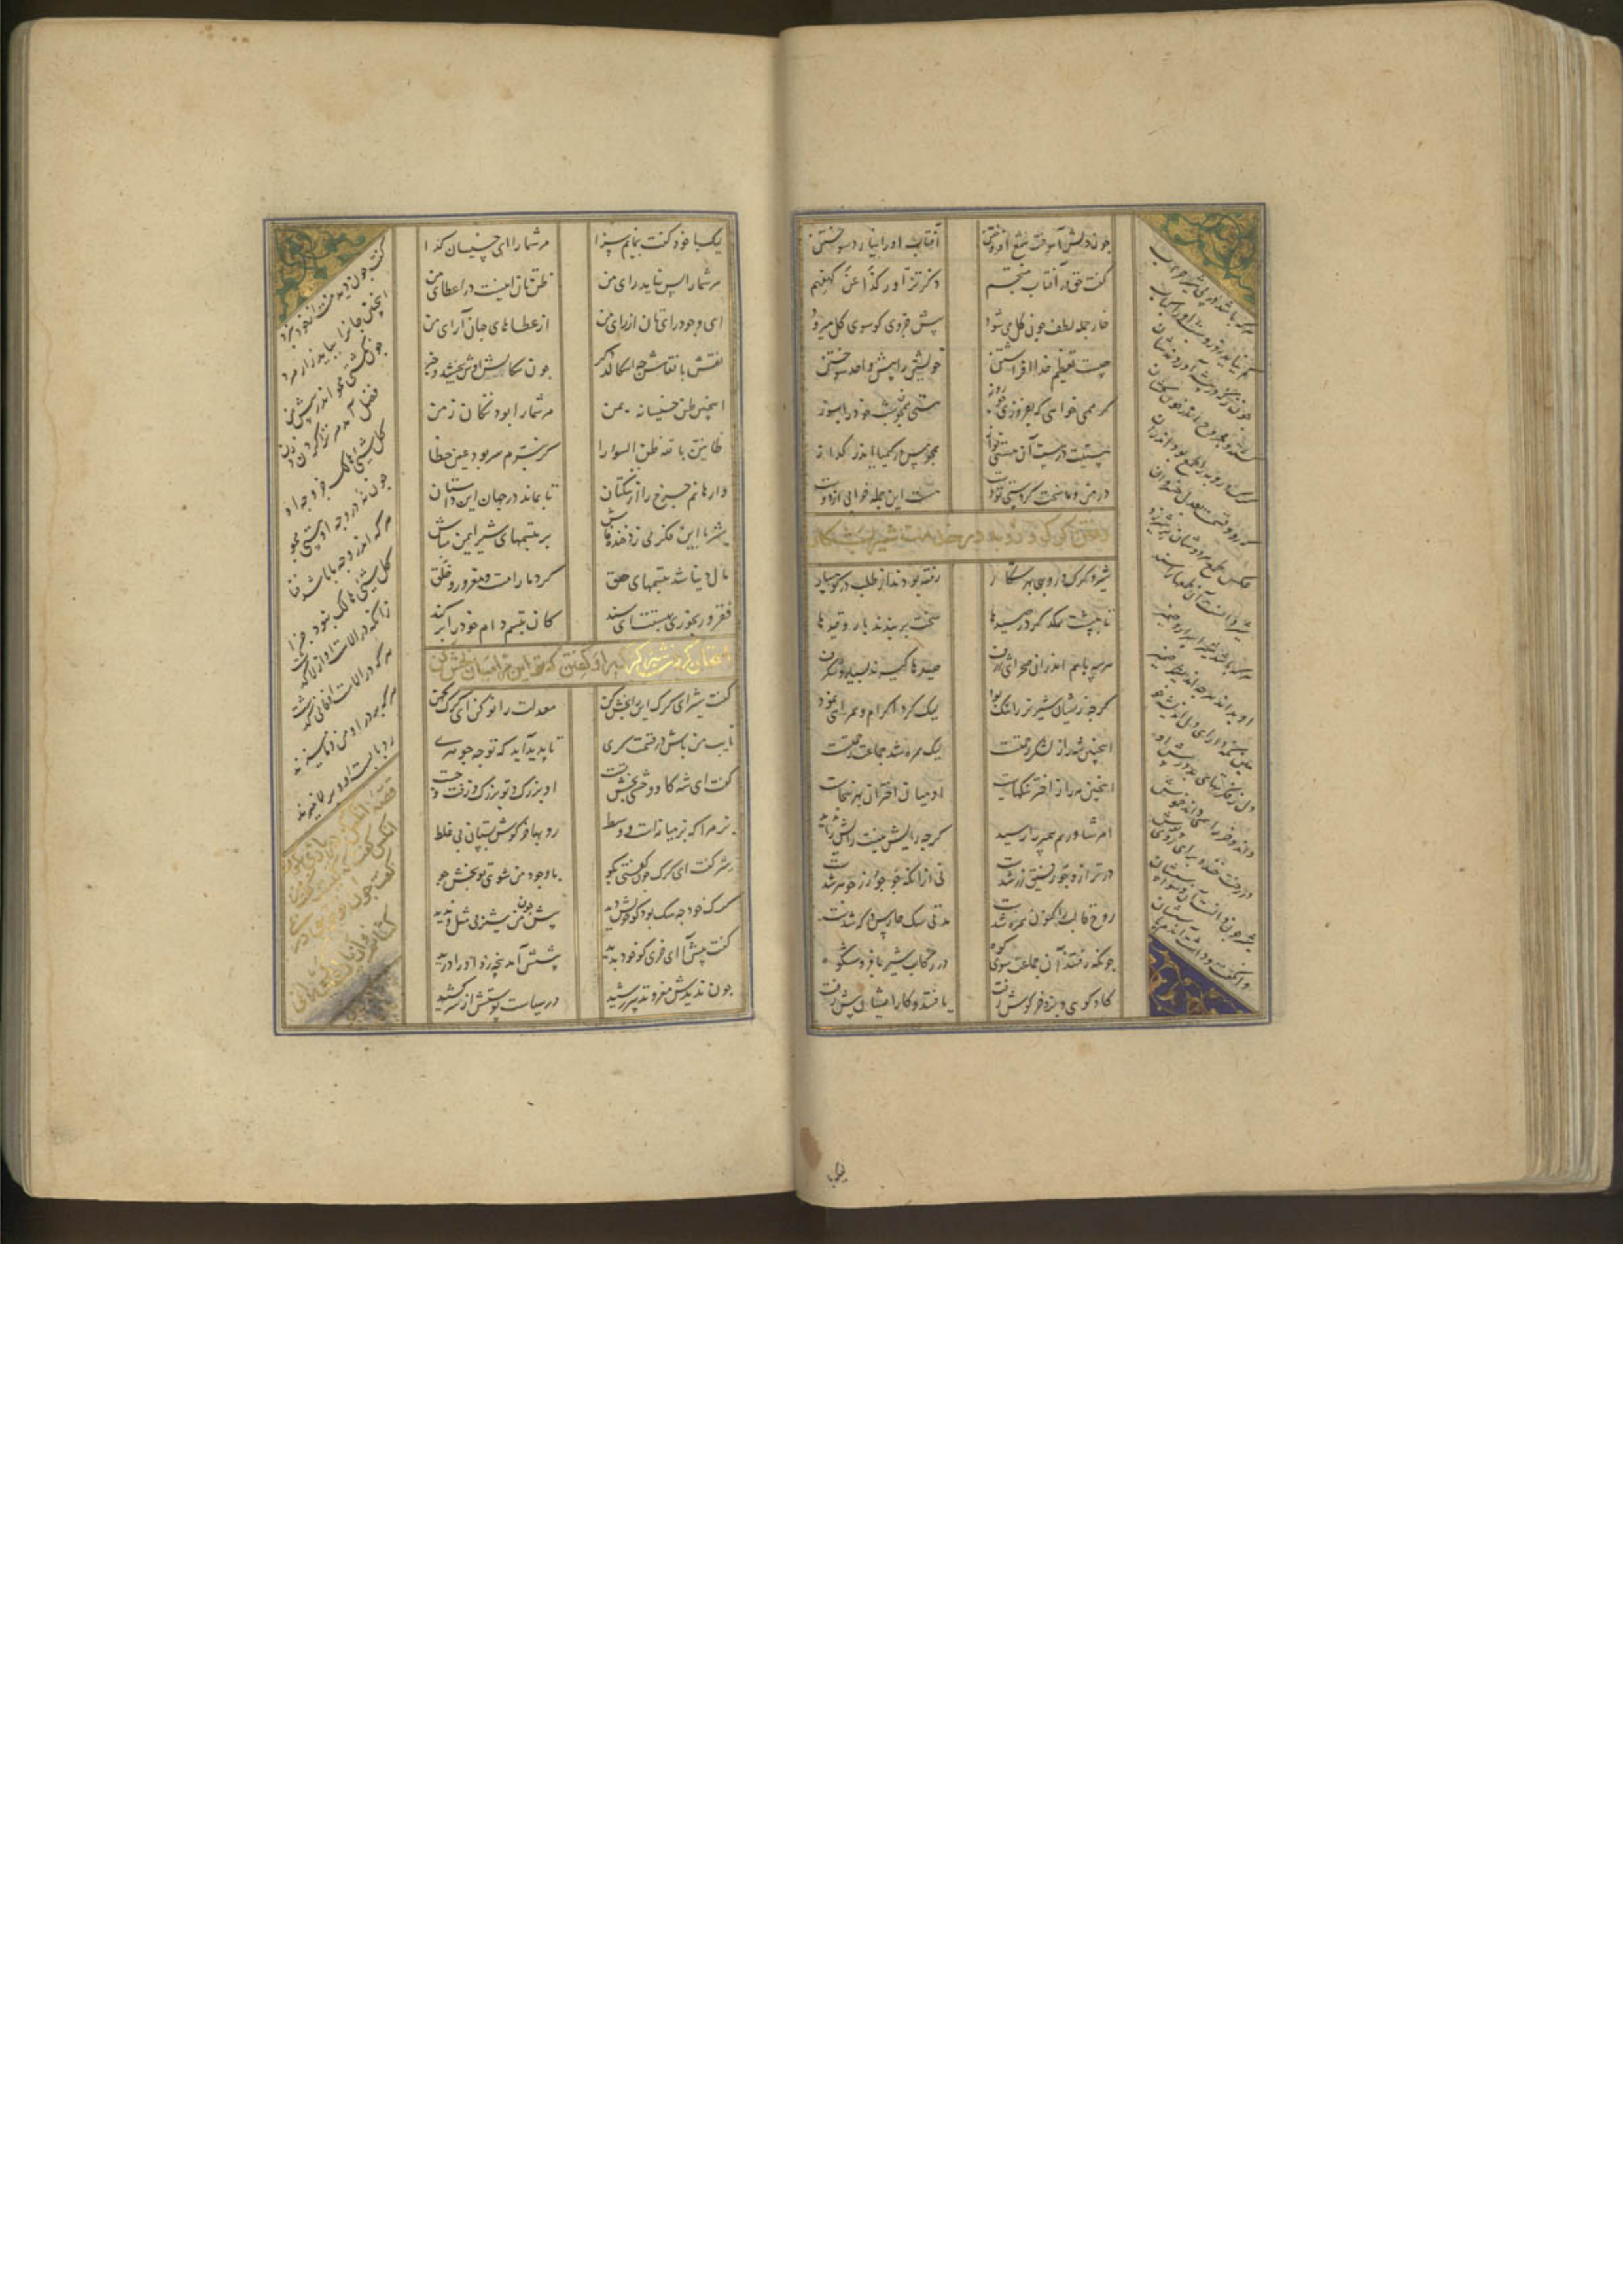 چون دلش آموخت شمع افروختن آفتاب او را نیارد سوختن
گفت حق در آفتاب منتجم ذکر تزاور کذا عن کهفهم
خار جمله لطف چون گل می شود پیش جزوی کو سوی کل میرود
چیست تعظیم خدا افراشتن خویشتن را پیش واحد سوختن
گر همی خواهی که بفروزی چو روز هستی همچون شب خود را بسوز
هستیت در هست آن هستی نواز همچو مس در کیمیا اندر گداز
در من و ما سخت کردستی دو دست هست این جمله خرابی از دو هست
رفتن گرگ و روباه در خدمت شیر بشکار
شیر و گرگ و روبهی بهر شکار رفته بودند از طلب در کوهسار
تا بپشت همدگر در صیدها سخت بر بندند بار و قیدها
هر سه باهم اندران صحرای ژرف صیدها گیرند بسیار و شگرف
گرچه زیشان شیر نر را ننگ بود لیک کرد اکرام و همراهی نمود
اینچنین شه را ز لشکر زحمتست لیک همره شد جماعت رحمتست
اینچنین مه را ز اختر ننگهاست او میان اختران بهر سخاست
امر شاورهم پیمبر را رسید گرچه رایش نیست رایش را ندید
در ترازو جو رفیق زر شدست نی ازانکه جو چو زر جوهر شدست
روح قالب را کنون همره شدست مدتی سگ حارس درگه شدست
چونکه رفتند آن جماعت سوی کوه در رکاب شیر با فر و شکوه
گاو کوهی و بز و خرگوش زفت یافتند و کار ایشان پیش رفت
هر که باشد در پی شیر حراب
کم نیاید روز و شب او را کباب
چون ز که در بیشه آوردندشان
کشته و مجروح و اندر خون کشان
گرگ و روبه را طمع بود اندران
که رود قسمت بعدل خسروان
عکس طمع هر دوشان بر شیر زد
شیر دانست آن طمعها را سند
هر که باشد شیر اسرار و امیر
او بداند هر چه اندیشد ضمیر
هین نگه دار ای دل اندیشه خو
دل ز در پیش او
داند و خر را همی راند خموش
در رخت خندد برای روی پوش
شیر چون دانست آن وسواسشان
وا نگفت و داشت آن دم پاسشان
لیک با خود گفت بنمایم سزا مر شما را ای خسیسان گدا
مر شما را بس نیاید رای من ظن تان اینست در اعطای من
ای وجود رایتان از رای من از عطاهای جهان آرای من
نقش با نقاش چه اسگالد دگر چون سگالش اوش بخشید و خبر
اینچنین ظن خسیسانه بمن مر شما را بود ننگان زمن
ظانین بالله ظن السوء را گر نبرم سر بود عین خطا
وارهانم چرخ را از ننگتان تا بماند در جهان این داستان
شیر با این فکر می زد خنده فاش بر تبسمهای شیر ایمن مباش
مال دنیا شد تبسمهای حق کرد ما را مست و مغرور و خلق
فقر و رنجوری بهستت ای سند کان تبسم دام خود را بر کند
امتحان کردن شیر گرگ را و گفتن که تو این را میان بخش کن
گفت شیر ای گرگ این را بخش کن معدلت را نو کن ای گرگ کهن
نایب من باش در قسمت گری تا پدید آید که تو چه جوهری
گفت ای شه گاو وحشی بخش تست او بزرگ و تو بزرگ و زفت و چست
بز مرا که بز میانه است و وسط روبها خرگوش بستان بی غلط
شیر گفت ای گرگ چون گفتی بگو با وجود من تو گویی بخش جو
گرگ خود چه سگ بود کو خویش دید پیش چون من شیر بی مثل و ندید
گفت پیش آ ای خری کو خود بدید پیشش آمد پنجه زد او را درید
چون ندیدش مغز و تدبیر رشید در سیاست پوستش از سر کشید
گفت چون دید منت از خود نبرد
اینچنین جانرا بباید زار مرد
چون نگشتی محو اندر پیش من
فضل آمد مر ترا گردن زدن
کل شیئ هالک جز وجه او
چون نه در وجه او هستی مجو
هر که اندر وجه ما باشد فنا
کل شیئ هالک نبود جزا
زانکه در الاست او از لا گذشت
هر که در الاست او فانی نگشت
هر که بر در او من و ما میزند
رد بابست او و بر لا میتند
قصه آنکس که در یاری بکوفت